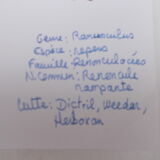 Genre: Ranunculus
Espèce: repens
Famille: Renonculacées
N. Commun: Renoncule
rampante
Lutte: Dictril, Weedar,
Herboxan